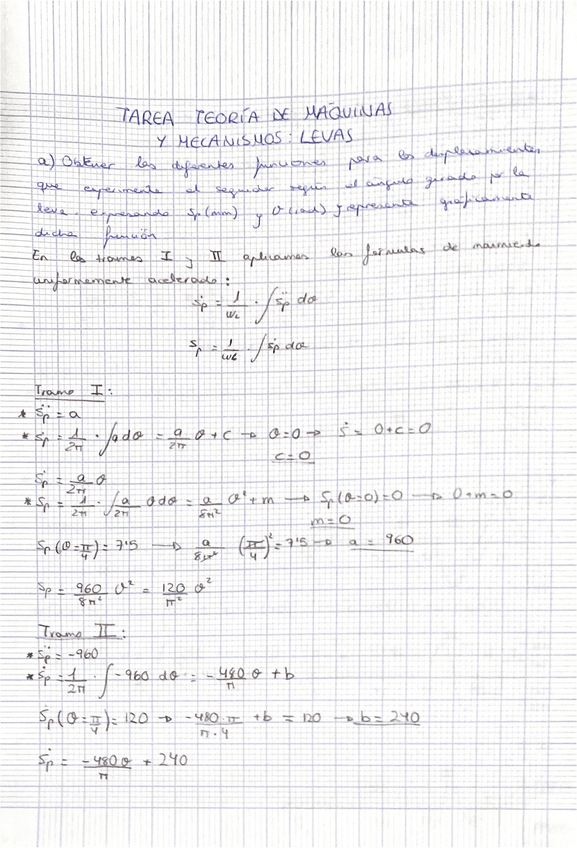 TAREA TEORÍA DE MÁQUINAS
Y MECANISMOS: LEVAS
a) Obtener las diferentes funciones para los desplazamientos
que experimenta el seguidor según el ángulo girado por la
leva, expresando Sp (mm) y θ (rad) y representa gráficamente
dicha función
En los tramos I y II aplicamos las fórmulas de movimiento
uniformemente acelerado:
ṡp = 1/ωL · ∫ s̈p dθ
sp = 1/ωL · ∫ ṡp dθ
Tramo I:
* s̈p = a
* ṡp = 1/2π · ∫ a dθ = a/2π θ + c → θ=0 → ṡ = 0+c=0
c=0
ṡp = a/2π θ
* Sp = 1/2π · ∫ a/2π θ dθ = a/8π² θ² + m → Sp(θ=0)=0 → 0+m=0
m=0
Sp(θ=π/4)=7'5 → a/8π² (π/4)² = 7'5 → a = 960
Sp = 960/8π² θ² = 120/π² θ²
Tramo II:
* s̈p = -960
* ṡp = 1/2π · ∫ -960 dθ = -480/π θ + b
ṡp(θ=π/4)=120 → -480·π/π·4 + b = 120 → b = 240
ṡp = -480θ/π + 240